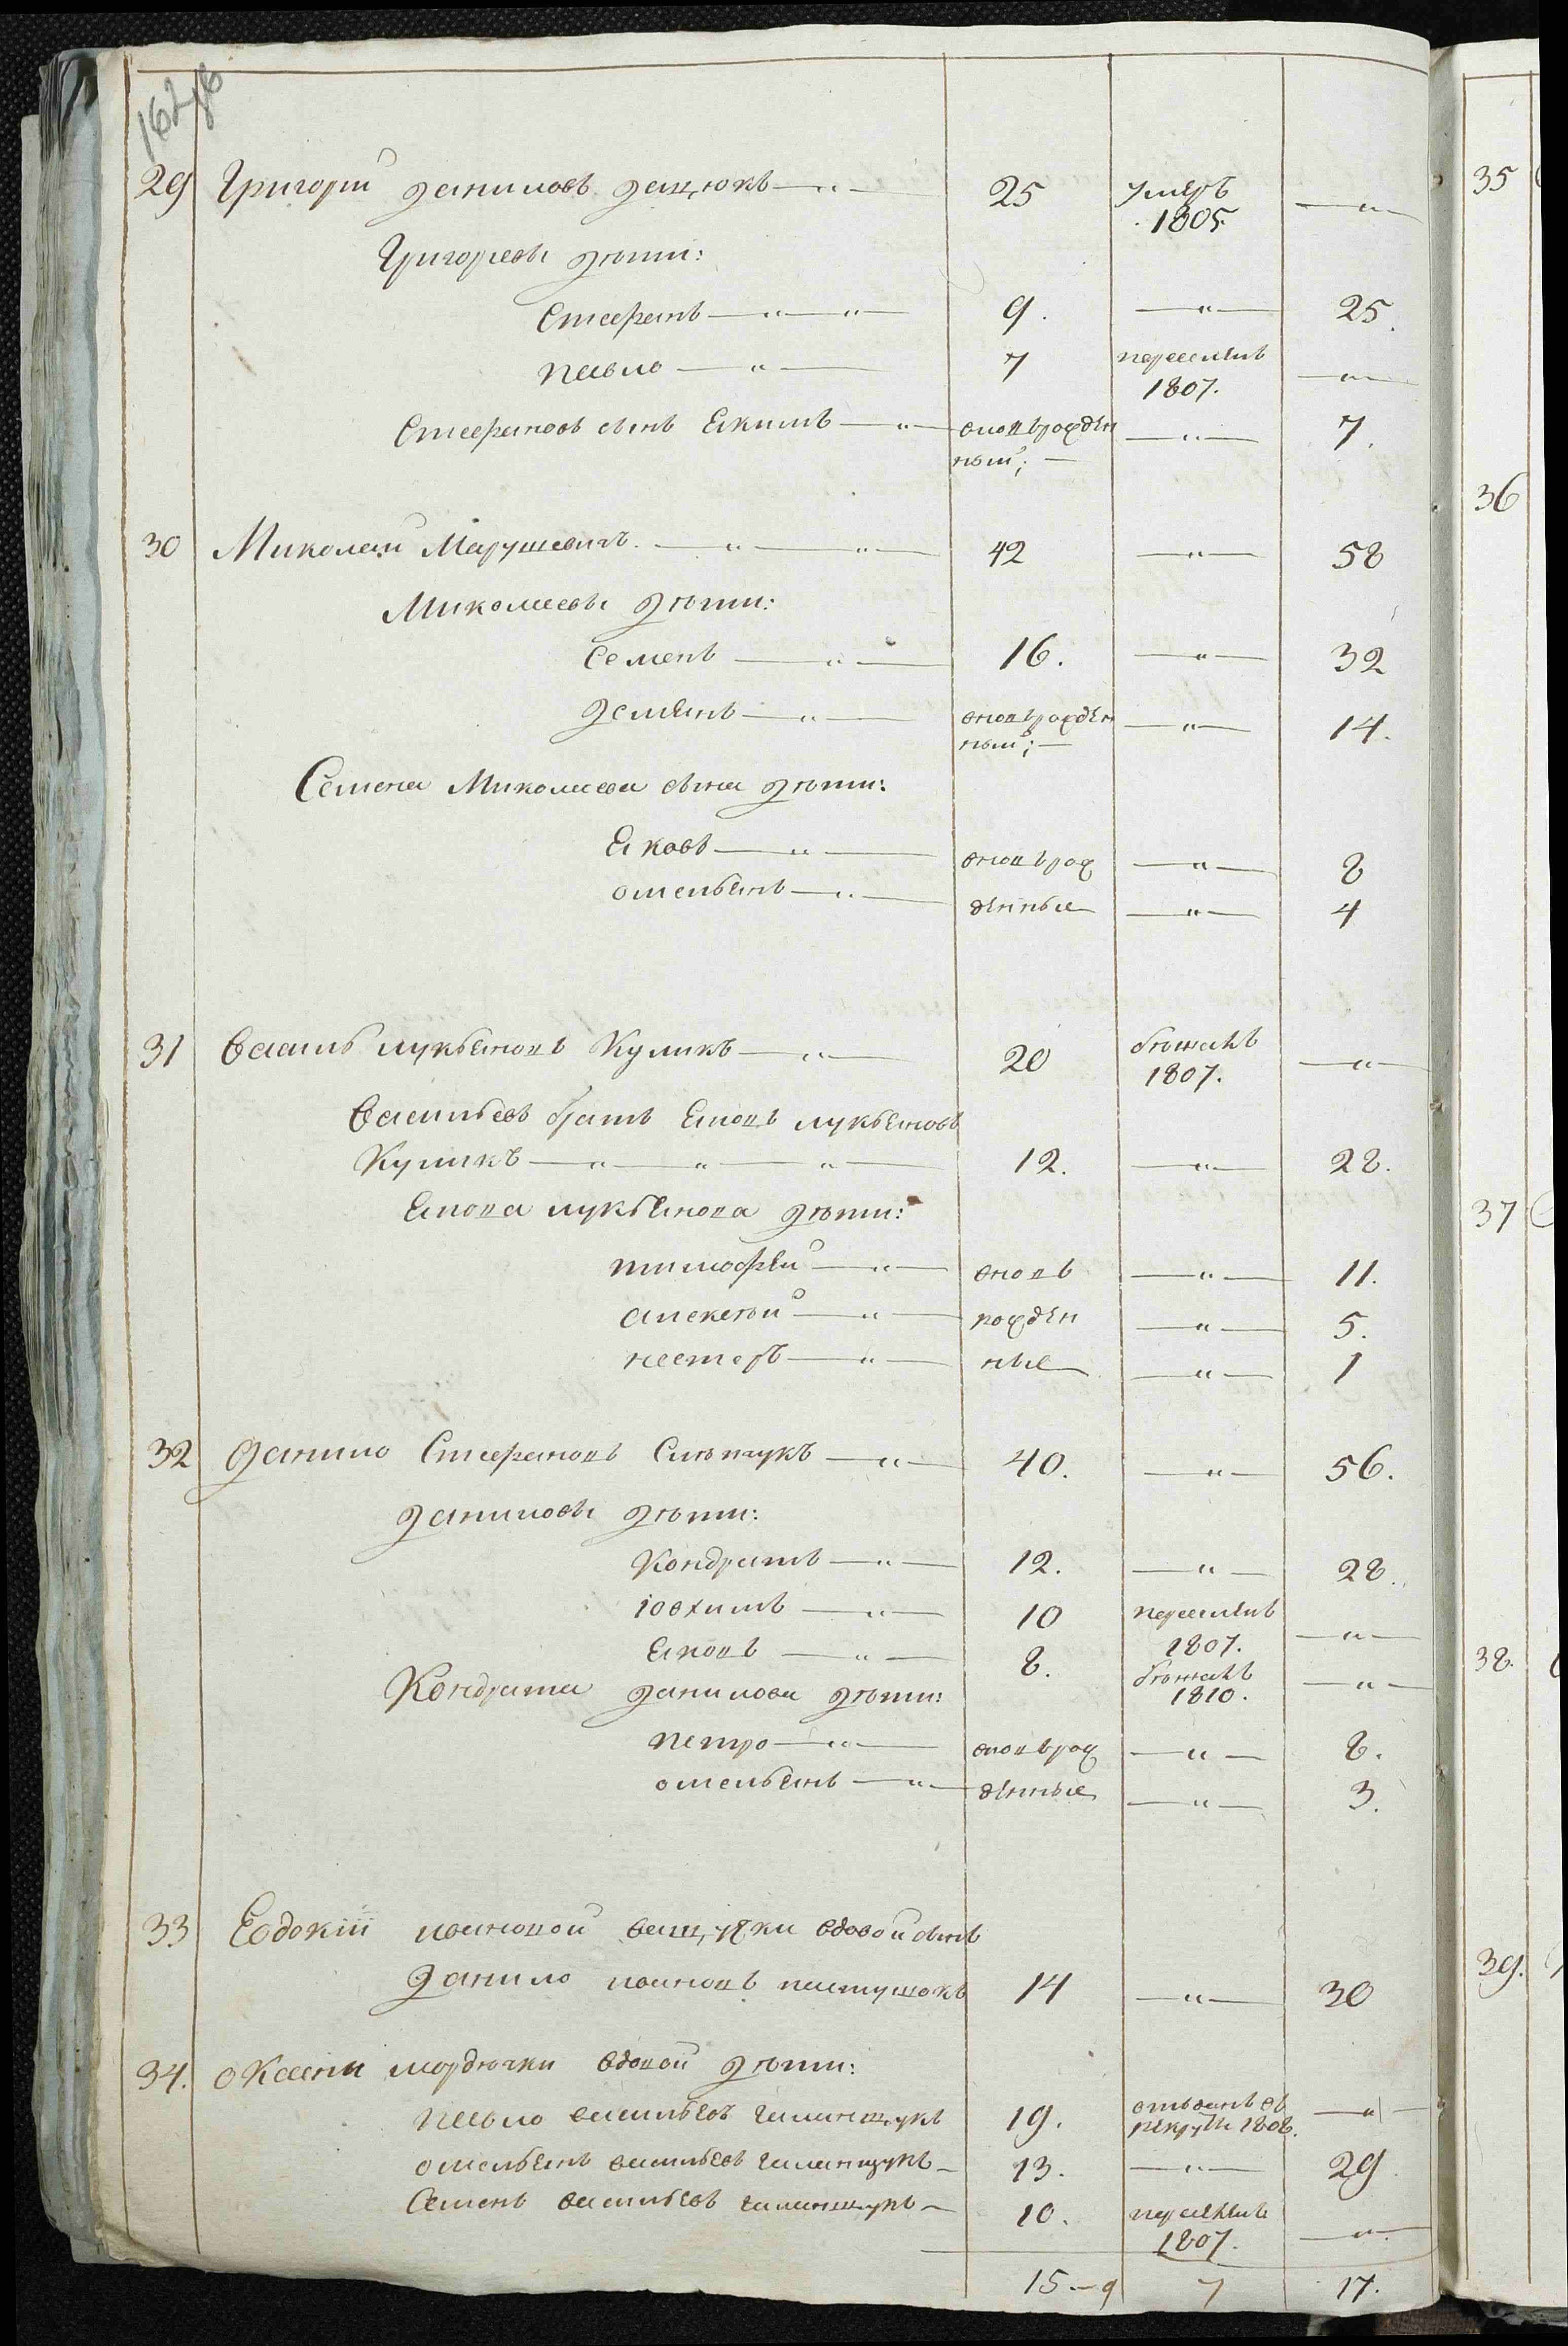 162об
29 Григорій Даниловъ Дацюкъ —„— 25 умеръ 1805. —„—
Григорьевы дѣти:
Стефанъ —„—„— 9. —„— 25.
Павло —„— 7 переселенъ 1807. —„—
Стефановъ сынъ Екимъ —„— вновьрожденный; — —„— 7.
30 Миколай Марушевичъ. —„—„— 42 —„— 58
Миколаевы дѣти:
Семенъ —„— 16. —„— 32
Демянъ —„— вновьрожденный; — —„— 14.
Семена Миколаева сына дѣти:
Яковъ —„— вновьрож —„— 8
Омельянъ —„— денные —„— 4
31 Василь Лукьяновъ Куликъ —„— 20 бѣжалъ 1807. —„—
Васильевъ братъ Яковъ Лукьяновъ
Куликъ —„—„—„— 12. —„— 28.
Якова Лукьянова дѣти:
Тимофей —„— вновь —„— 11.
Алексѣй —„— рожден —„— 5.
Нестеръ —„— ные —„— 1
32 Данило Стефановъ —„— 40. —„— 56.
Даниловы дѣти:
Кондратъ —„— 12. —„— 28.
Іовхимъ —„— 10 переселенъ 1807. —„—
Яковъ —„— 8. бѣжалъ 1810. —„—
Кондрата Данилова дѣти:
Петро —„— вновьрож —„— 8.
Омельянъ —„— денные —„— 3.
33 Евдокіи Ивановой вдовой сынъ
Данило Ивановъ Пастушокъ 14 —„— 30
34. Оксени Мордючки вдовой дѣти:
Павло Васильевъ 19. отъданъ въ рекруты 1808. —„—
Омельянъ Васильевъ 13. —„— 29
Семенъ Васильевъ 10. переселенъ 1807. —„—
15.—9 7 17.
35
36
37
38.
39.